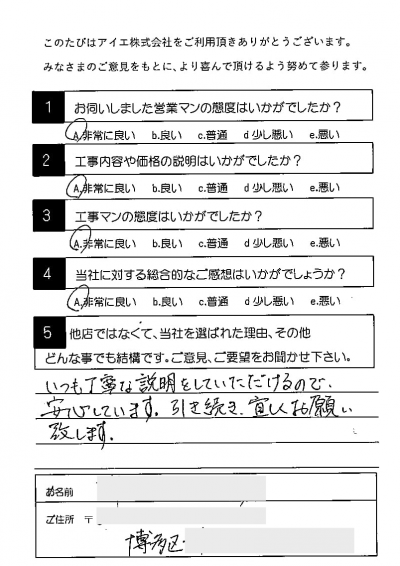 このたびはアイエ株式会社をご利用頂きありがとうございます。
みなさまのご意見をもとに、より喜んで頂けるよう努めて参ります。
1 お伺いしました営業マンの態度はいかがでしたか？
A.非常に良い b.良い c.普通 d少し悪い e.悪い
2 工事内容や価格の説明はいかがでしたか？
A.非常に良い b.良い c.普通 d少し悪い e.悪い
3 工事マンの態度はいかがでしたか？
A.非常に良い b.良い c.普通 d少し悪い e.悪い
4 当社に対する総合的なご感想はいかがでしょうか？
A.非常に良い b.良い c.普通 d少し悪い e.悪い
5 他店ではなくて、当社を選ばれた理由、その他
どんな事でも結構です。ご意見、ご要望をお聞かせ下さい。
いつも丁寧な説明をしていただけるので、
安心しています。引き続き、宜しくお願い
致します。
お名前
ご住所 〒
博多区